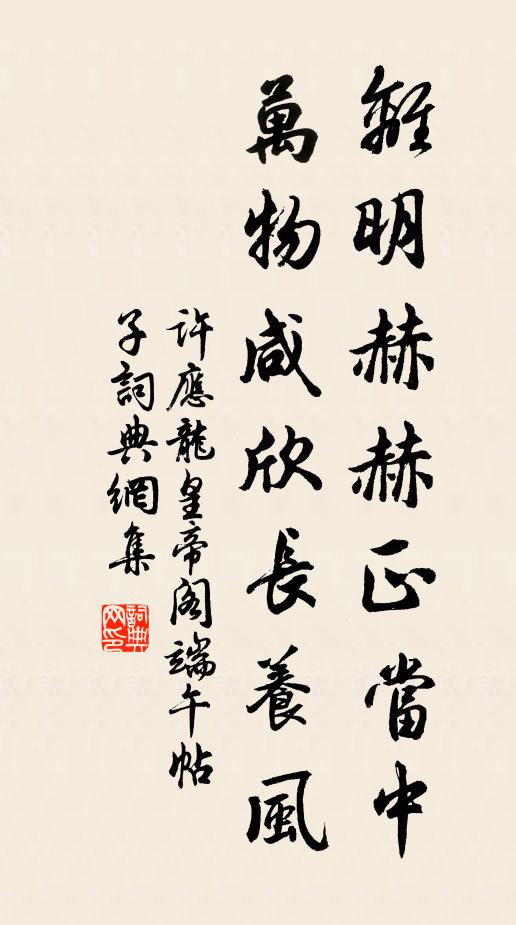 離明赫赫正當中
萬物咸欣長養風
許應龍皇帝閣端午帖
子詞典網集
詞典
網印